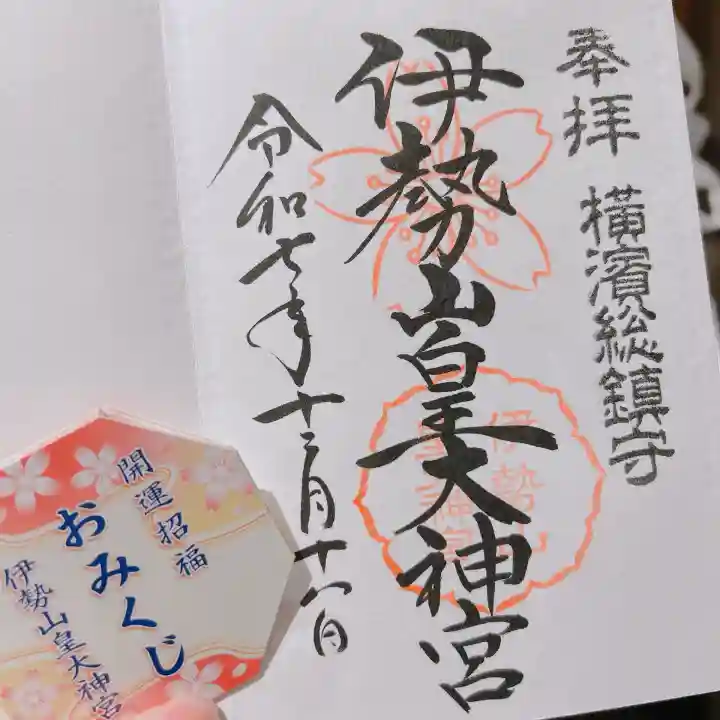 奉拝
横濱総鎮守
伊勢山皇大神宮
令和七年十二月十八日
開運招福
おみくじ
伊勢山皇大神宮